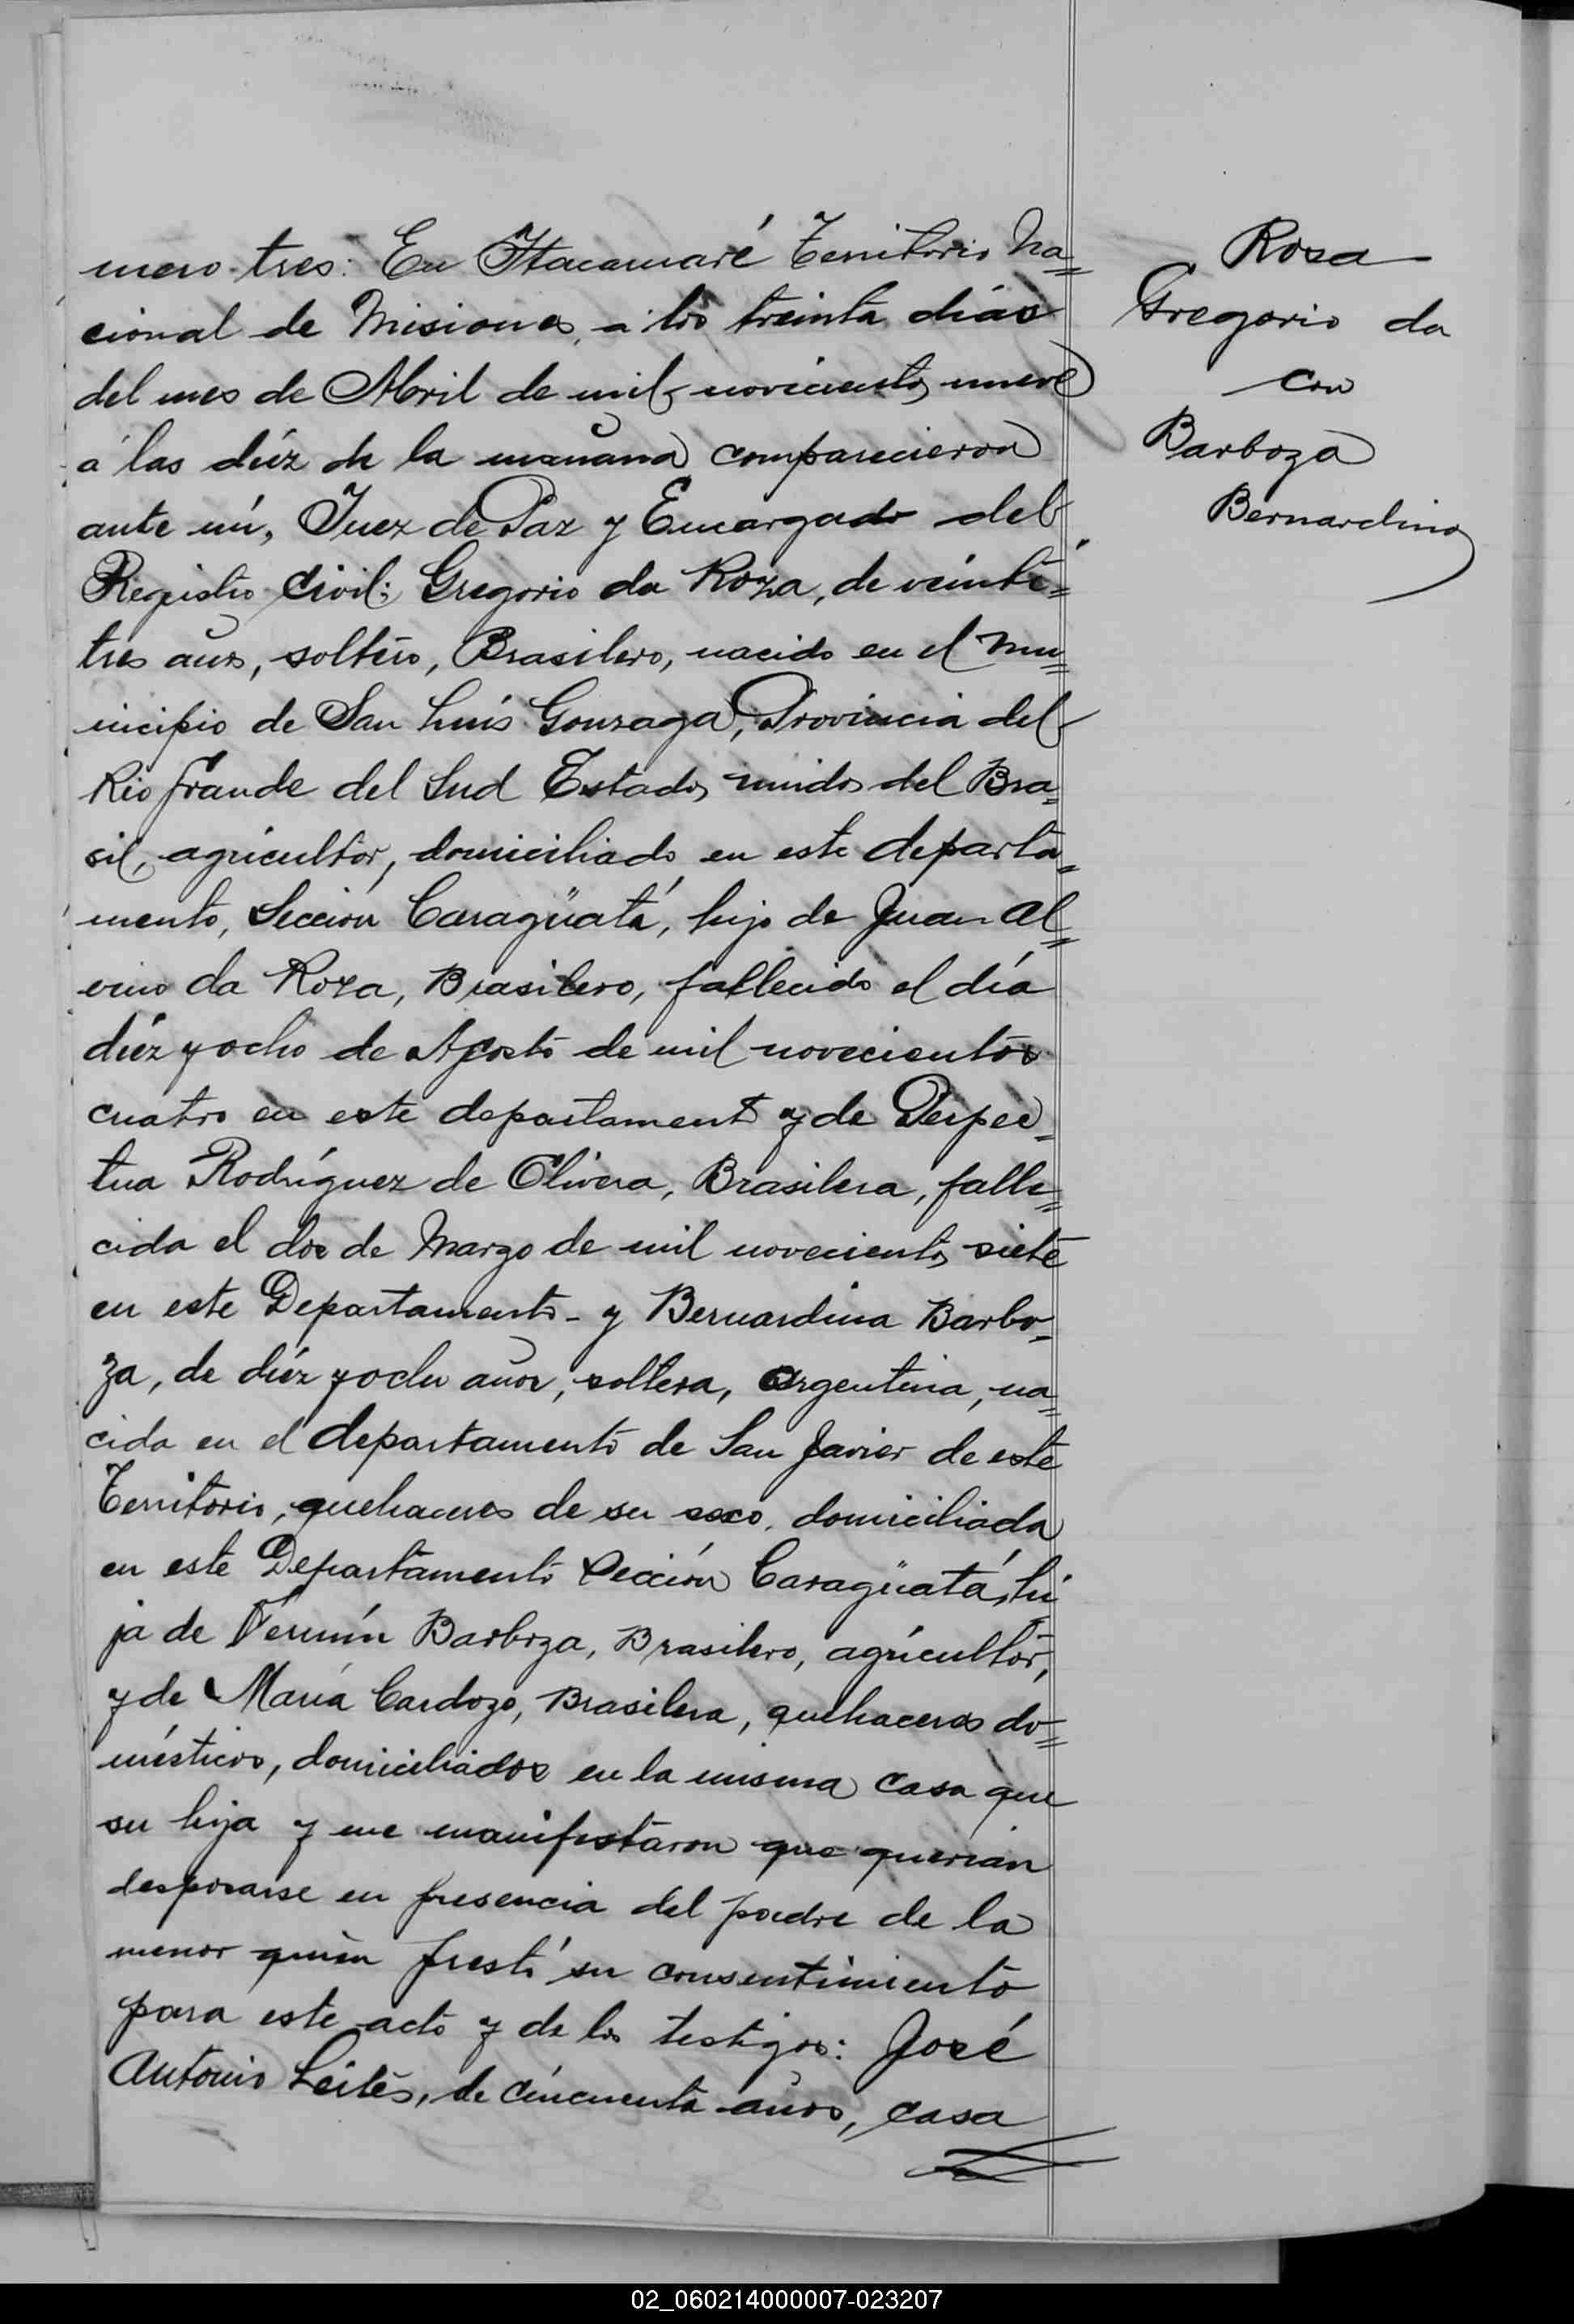 mero tres: En Itacaruaré Territorio Na=
cional de Misiones, a los treinta días
del mes de Abril de mil novecientos nueve
a las diéz de la mañana comparecieron
ante mí, Juez de Paz y Encargado del
Registro Civil: Gregorio da Roza, de veinti=
tres años, soltero, Brasilero, nacido en el Mu=
nicipio de San Luís Gonzaga, Provincia del
Rio Grande del Sud Estados unidos del Bra=
sil, agricultor, domiciliado en este departa=
mento, Sección Caragüatá, hijo de Juan Al=
vino da Roza, Brasilero, fallecido el día
diéz y ocho de Agosto de mil novecientos
cuatro en este departamento y de Perpe=
tua Rodríguez de Olivera, Brasilera, falle=
cida el dos de Marzo de mil novecientos siete
en este Departamento - y Bernardina Barbo=
za, de diéz y ocho años, soltera, Argentina, na=
cida en el departamento de San Javier de este
Territorio, quehaceres de su sexo, domiciliada
en este Departamento Sección Caragüatá, hi
ja de Fermín Barboza, Brasilero, agricultor,
y de María Cardozo, Brasilera, quehaceres do=
mésticos, domiciliados en la misma casa que
su hija y me manifestaron que querían
desposarse en presencia del padre de la
menor quien prestó su consentimiento
para este acto y de los testigos: José
Antonio Leites, de cincuenta años, casa
Rosa
Gregorio da
con
Barboza
Bernardina
02_060214000007-023207